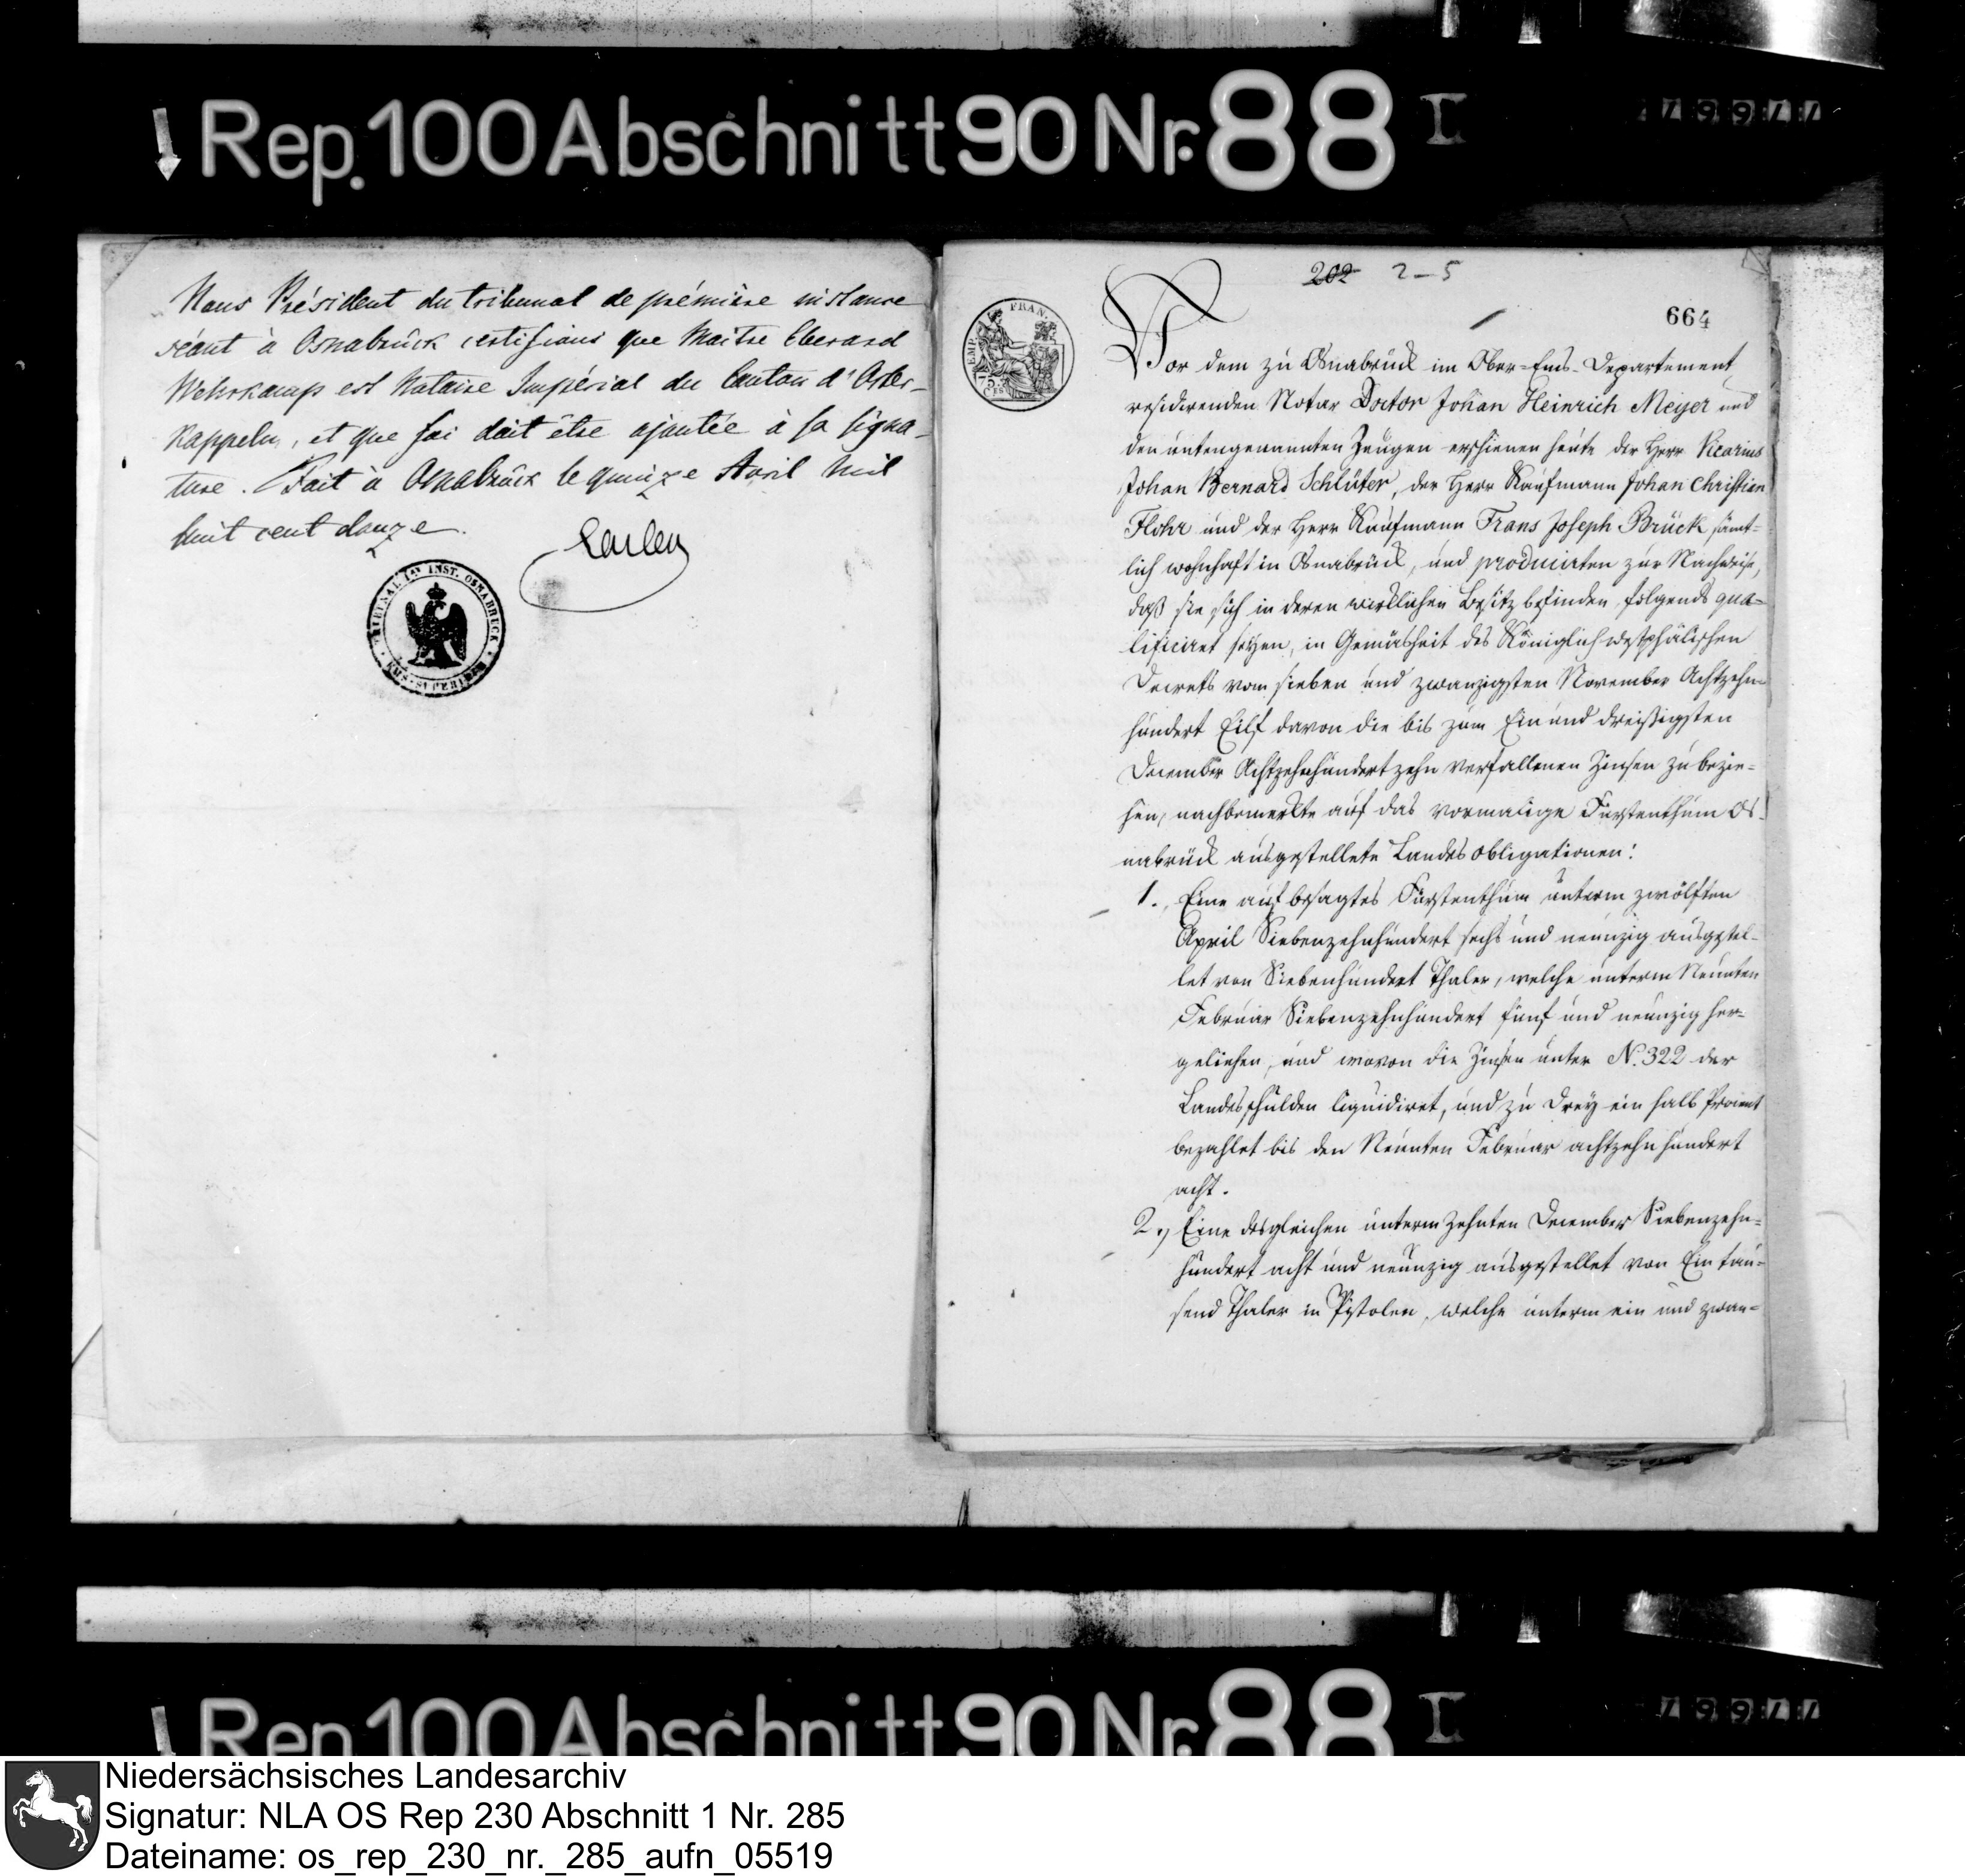 Rep. 100 Abschnitt 90 Nr. 88 I
Nous Président du tribunal de prémière instance
séant à Osnabrück certifions que Maitre Eberard
Wehrkamp est Notaire Impérial du Canton d'Oster-
kappeln, et que foi doit être ajoutée à sa signa-
ture. Fait à Osnabrück le quinze Avril mil
huit cent douze.
TRIBUNAL 1er INST. OSNABRUCK
EMS-SUPERIEUR
202 2-5
664
EMP. FRAN.
75
Vor dem zu Osnabrück im Ober-Ems-Departement
residirenden Notar Doctor Johan Heinrich Meyer und
den untengenannten Zeugen erschienen heute der Herr Vicarius
Johan Bernard Schlüter, der Herr Kaufmann Johan Christian
Flohr und der Herr Kaufmann Frans Joseph Brück sämt-
lich wohnhaft in Osnabrück, und producirten zur Nachweise,
daß sie sich in deren wirklichen Besitz befinden, folgends qua-
lificiret seyen, in Gemäsheit des Königlich westphälischen
Decrets vom sieben und zwanzigsten November Achtzehn-
hundert Eilf davon die bis zum Ein und dreißigsten
December Achtzehnhundert zehn verfallenen Zinsen zu bezie-
hen, nachbemerkte auf das vormalige Fürstenthum Os-
nabrück ausgestellete Landesobligationen:
1. Eine auf besagtes Fürstenthum unterm zwölften
April Siebenzehnhundert sechs und neunzig ausgestel-
let von Siebenhundert Thaler, welche unterm Neunten
Februar Siebenzehnhundert fünf und neunzig her-
geliehen, und wovon die Zinsen unter N. 322 der
Landesschulden liquidiret, und zu Drey ein halb Procent
bezahlet bis den Neunten Februar achtzehn hundert
acht.
2., Eine desgleichen unterm Zehnten December Siebenzehn-
hundert acht und neunzig ausgestellet von Ein tau-
send Thaler in Pistolen, welche unterm ein und zwan-
Rep. 100 Abschnitt 90 Nr. 88 I
Niedersächsisches Landesarchiv
Signatur: NLA OS Rep 230 Abschnitt 1 Nr. 285
Dateiname: os_rep_230_nr._285_aufn_05519